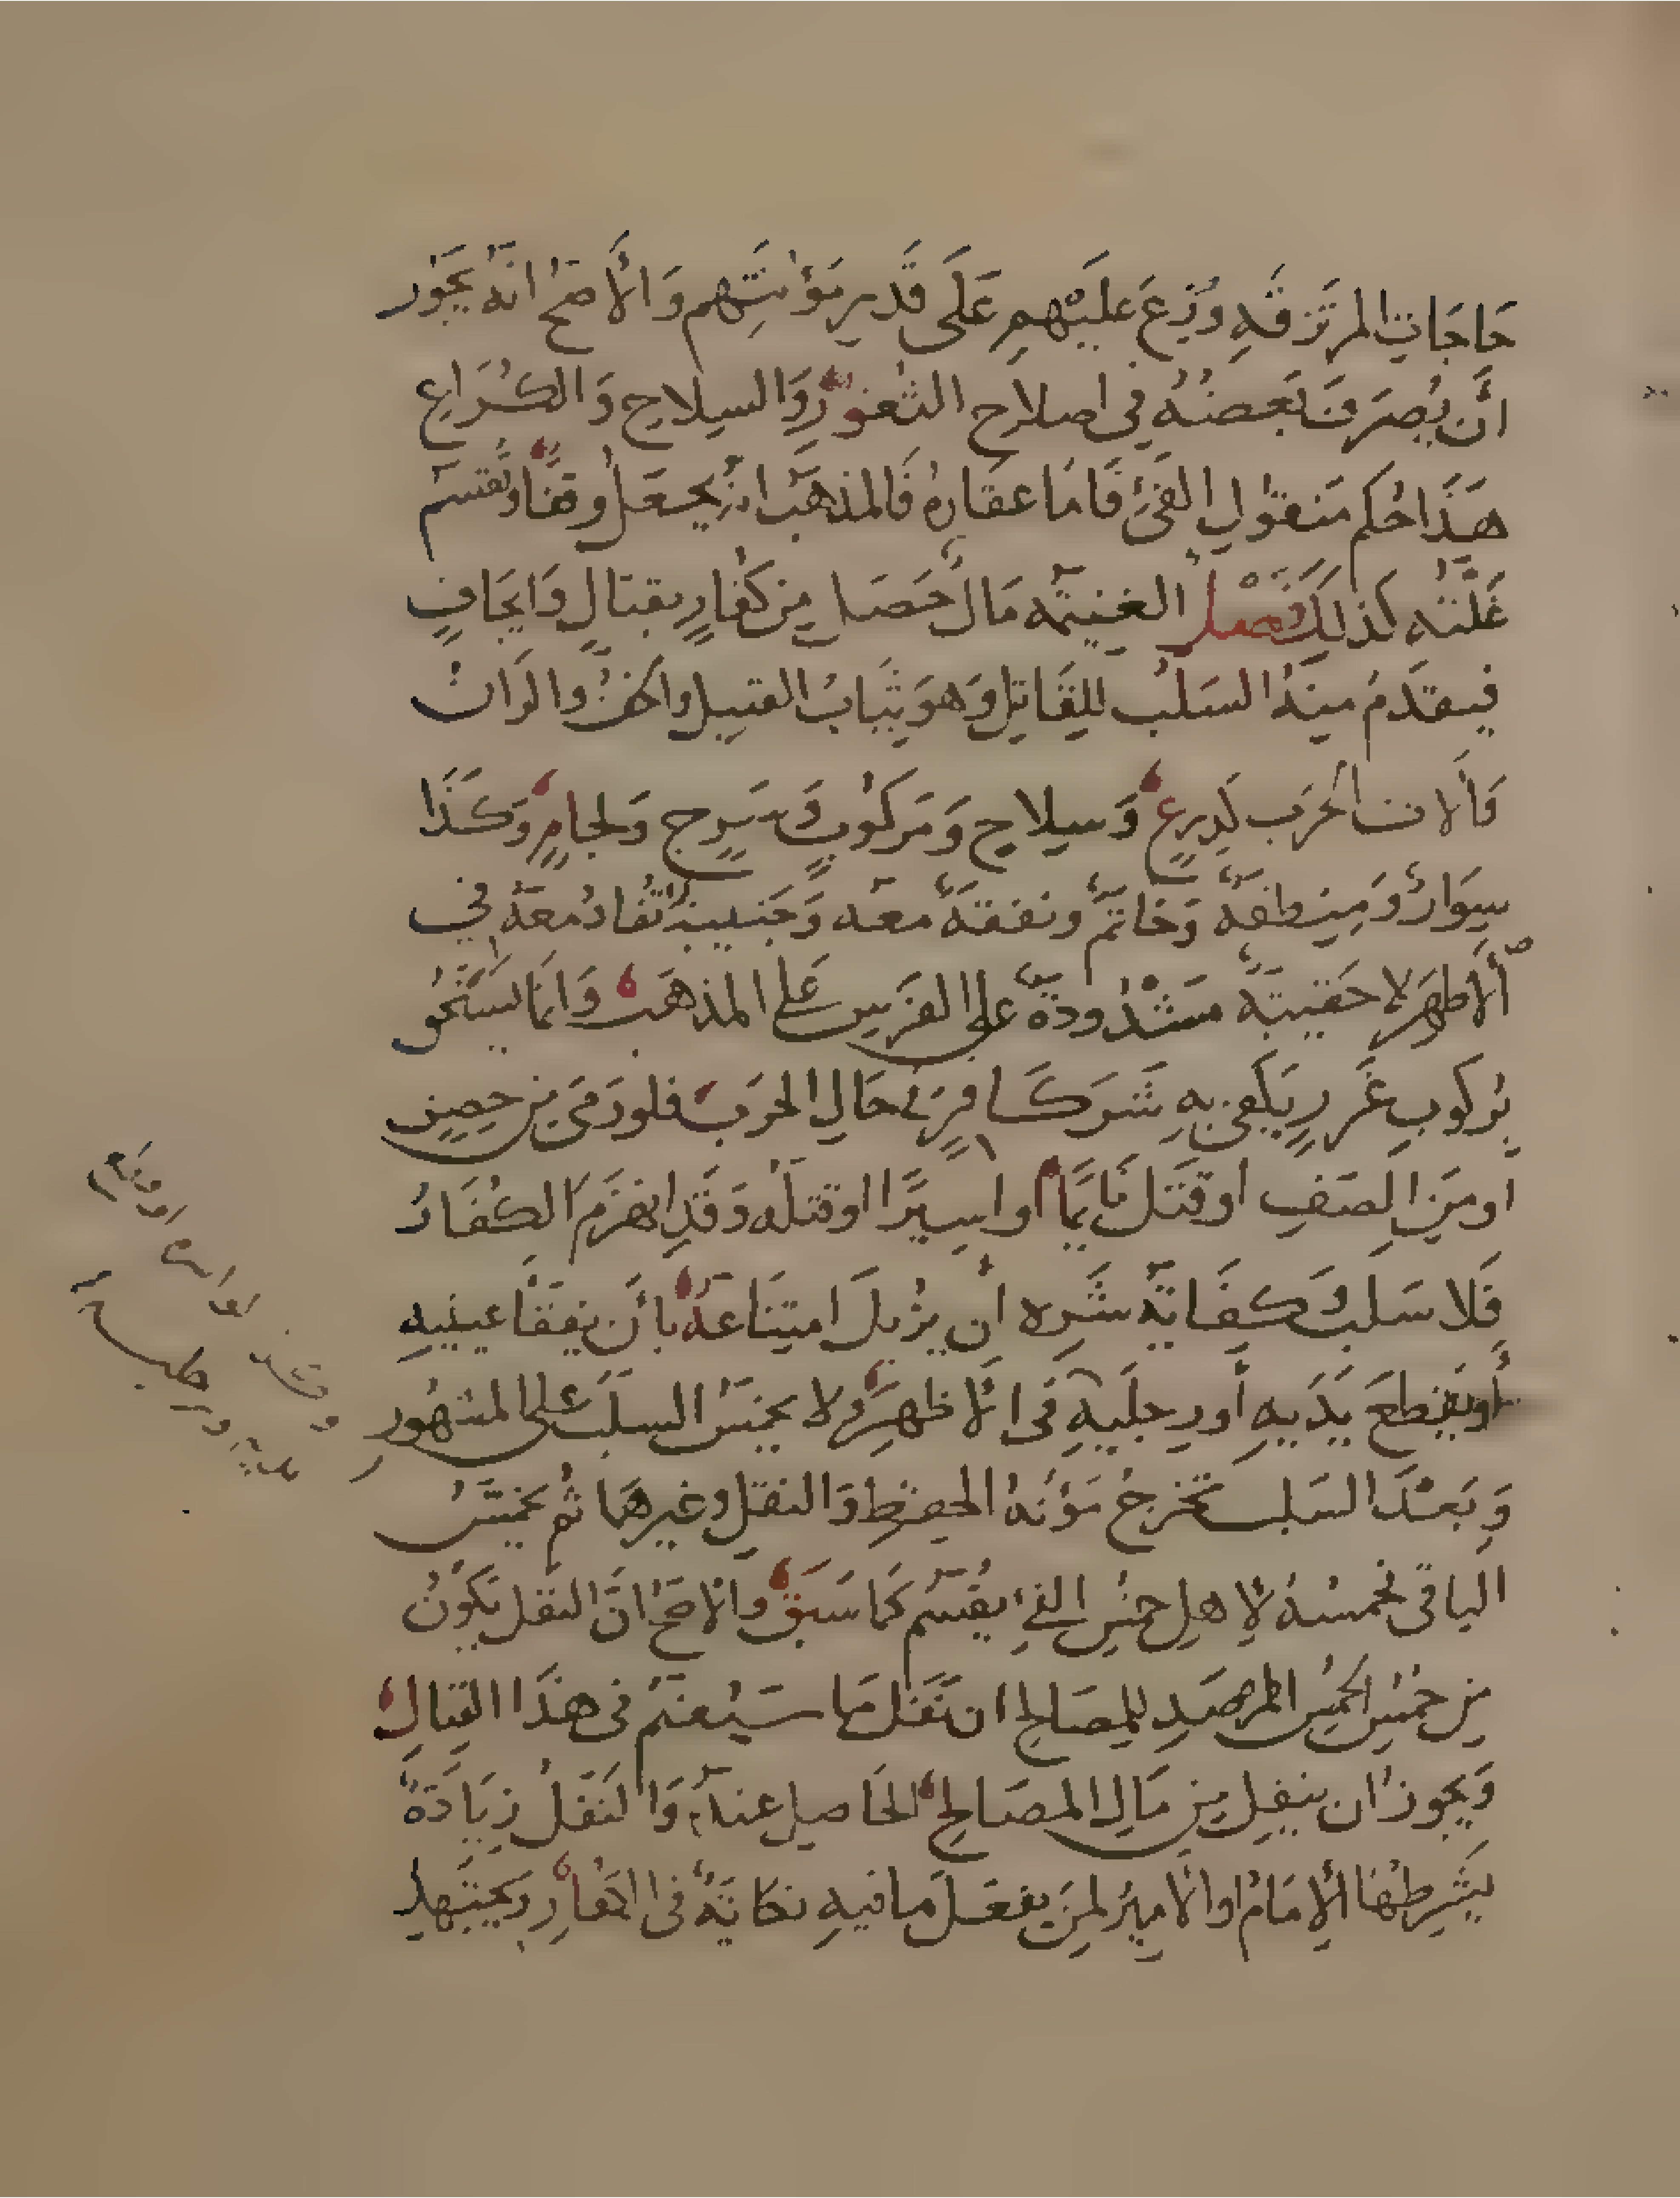 حَاجَاتِ المرتَزقَهِ وُزِعَ عَليَهِم عَلَى قَدرِ مَؤنَتِهِم وَالأَصَحُ انهُ يَجَوُز
أَن يُصرَفَ بَعضُهُ فِى اصلاحِ الثغورِ وَالسِلاحِ وَالكُرَاعِ
هَذَا حُكم مَنقولِ الفَئِ فَامَا عقَارهُ فَالمذهَب انهُ يجعَل وقفًا وتُقسَم
غَلتهُ كذلِكَ فَصل الغنيمَة مَالٌ حَصَل مِن كفارٍ بقتالٍ وَايجَافٍ
فيقدَمُ مِنهُ السَلبُ للِقَاتِلِ وَهوَ ثيَابُ القتِيلِ والخف والرَانُ
وَالات الحَرَبِ كَدِرعٍ وَسِلاحٍ وَمَركوُبٍ وسَرجٍ وَلجامٍ وَكذَا
سِوَارٌ وَمِنطقهٌ وَخاتمٌ ونفقةٌ معَه وَجَنيبةٌ تُقادُ معَهُ في
ألأظهَرِ لا حَقيبَةٌ مَشدُودَةٌ على الفرَسِ عَلى المذهَب وَانمَا يَستَحق
بُركوبِ غَررٍ يَكفِى بِهِ شَر كَافِرٍ فى حَالِ الحرَبِ فلو رَمَى مِن حِصنٍ
او مِنَ الصَفِ او قَتَل نَايمًا او اسِيرًا او قتلهُ وَقَدِ انهزَمَ الكفَارُ
فَلا سَلبَ وَكِفَايَةُ شَرِه ان يُزيلَ امتِنَاعَهُ بأَن يَفقَأَ عينيهِ
أو يَقطعَ يَدَيهِ أَو رِجلَيهِ فى الأظهَرِ ولا يخمَسُ السلَبُ عَلى المشهُور
وَبَعدَ السَلبِ تخرجُ مَؤنهُ الحِفظِ وَالنقلِ وغيرهَا ثُم يخمَسُ
الباقى فخمسُهُ لاِهلِ خمُسِ الفئِ يقُسَم كمَا سَبَق والأصَحُ انَ النفَل يَكوُنُ
مِن خمُسِ الخمُسِ المرصَدِ للِمصَالحِ ان نَفَل مَا سَيُغنَمُ فى هذَا القتال
وَيجوزُ ان ينفِل مِن مَالِ المصَالِحِ الحَاصِلِ عندَهُ وَالنفَلُ زيَادَةٌ
يَشرِطهَا الإمَامُ او الأميرُ لمِنَ يفعَل مَا فيهِ نكايَهٌ فى الكفارِ وَيجتَهد